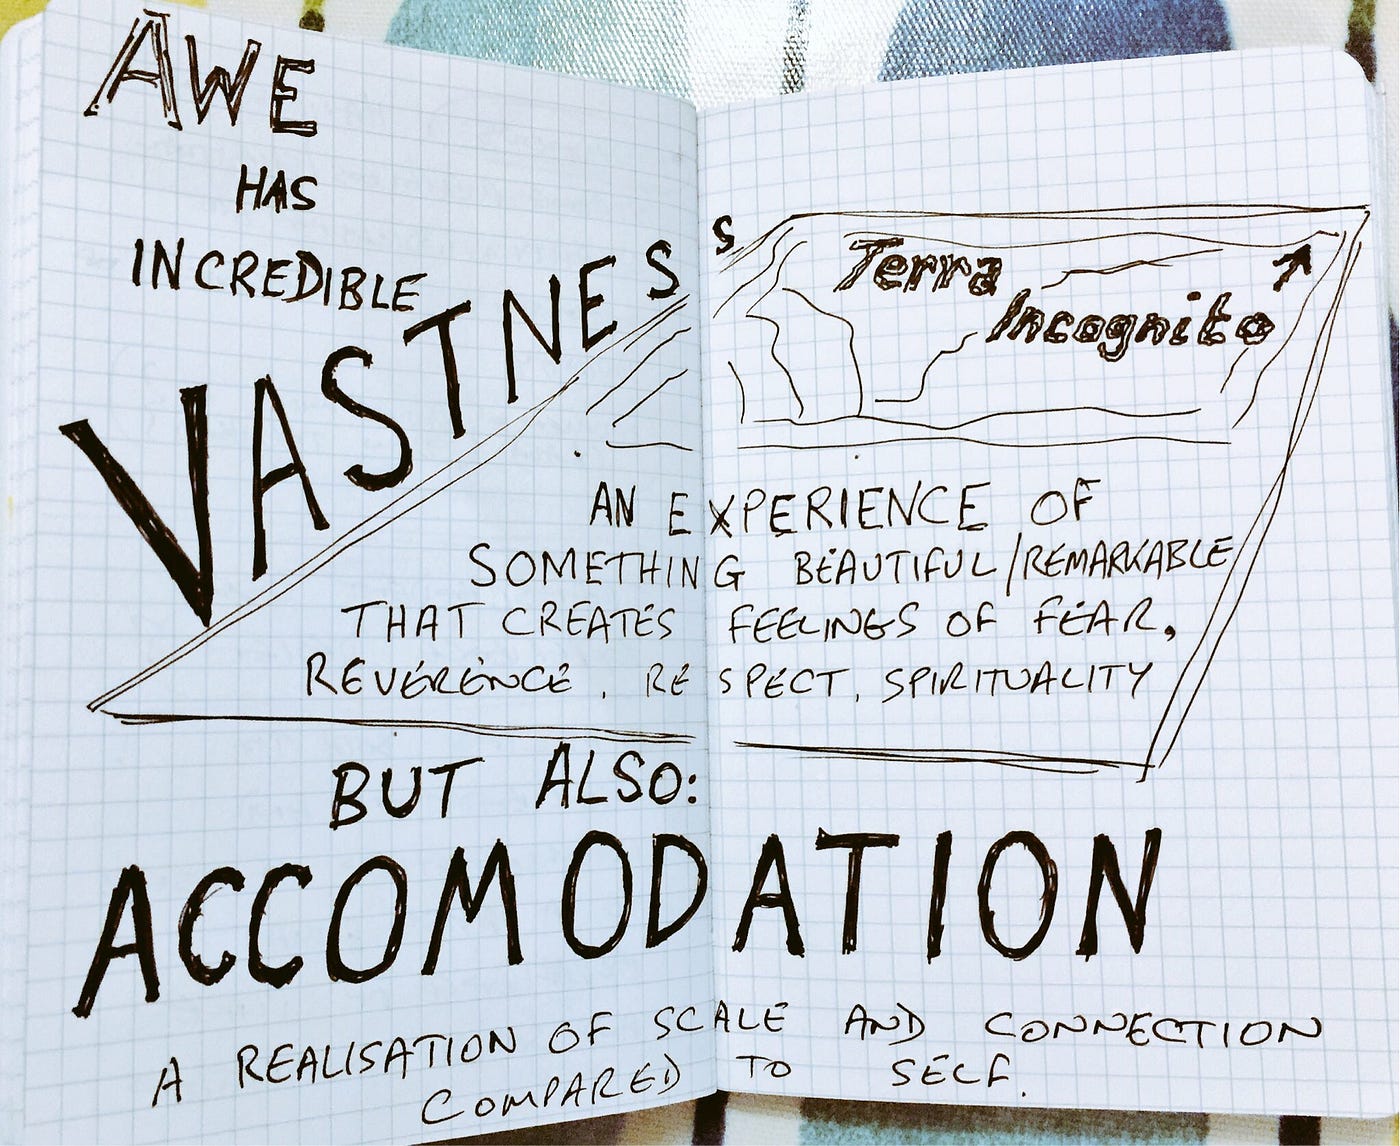 AWE
HAS
INCREDIBLE
VASTNESS
Terra
Incognito
AN EXPERIENCE OF
SOMETHING BEAUTIFUL/REMARKABLE
THAT CREATES FEELINGS OF FEAR,
REVERENCE, RESPECT, SPIRITUALITY
BUT ALSO:
ACCOMODATION
A REALISATION OF SCALE AND CONNECTION
COMPARED TO SELF.